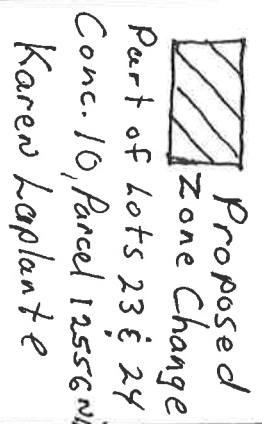 Proposed
Zone Change
Part of Lots 23 & 24
Conc. 10, Parcel 12556 N.
Karen Laplante